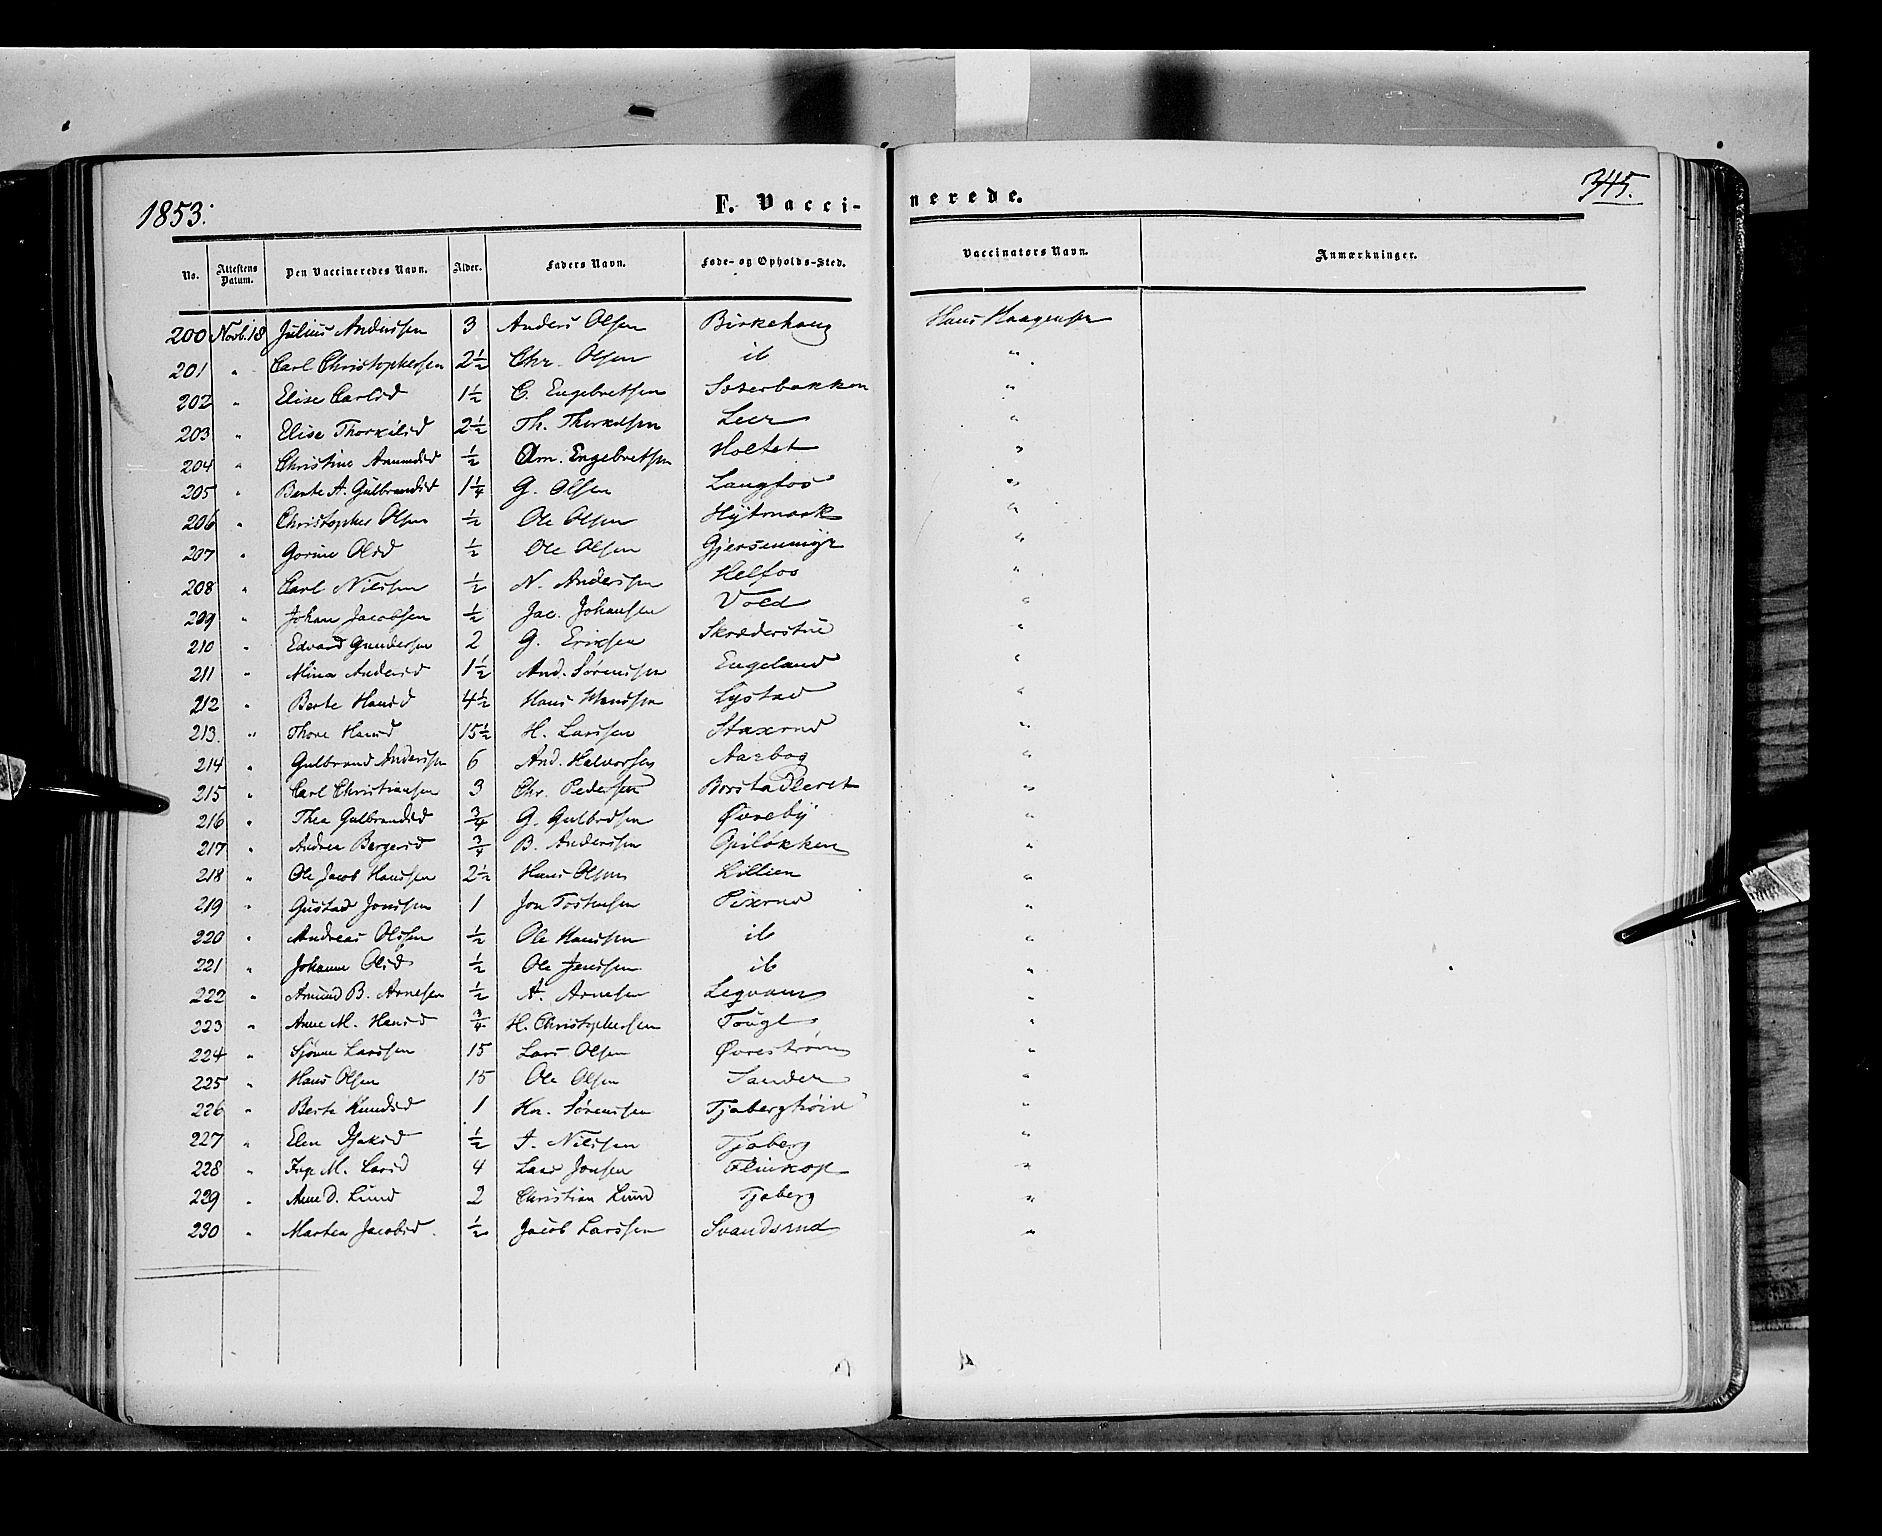 1853. F. Vaccinerede. 345.
No. Attestens Datum. Den Vaccineredes Navn. Alder. Faders Navn. Føde- og Opholds-Sted. Vaccinators Navn. Anmærkninger.
200 Novb. 18 Julius Anderssen 3 Anders Olsen Birkehaug Hans Haagensen
201 " Carl Christophersen 2½ Chr. Olsen ib "
202 " Elise Carlsd 1½ C. Engebretsen Sæterbakken "
203 " Elise Thorkilsd 2½ Th. Thorkilsen Leer "
204 " Christine Amundsd ½ Am. Engebretsen Holtet "
205 " Berte A. Gulbrandsd 1¼ G. Olsen Langfos "
206 " Christopher Olsen ½ Ole Olsen Hytmark "
207 " Gorine Olsd ½ Ole Olsen Gjersenmyr "
208 " Carl Nilssen ½ N. Anderssen Helfos "
209 " Johan Jacobsen ½ Jac. Johansen Vold "
210 " Edvard Gundersen 2 G. Eriksen Skrædderstue "
211 " Mina Andersd 1½ And. Sørenssen Engeland "
212 " Berte Hansd 4½ Hans Hanssen Lystad "
213. " Thore Hansd 15½ H. Larssen Staxrud "
214 " Gulbrand Anderssen 6 And. Halvorsen Aarbog "
215 " Carl Christiansen 3 Chr. Pedersen Borstadleret "
216 " Thea Gulbrandsd ¾ G. Gulbrdsen Øvreby "
217 " Andrea Bergersd ¾ B. Anderssen Opiløkken "
218 " Ole Jacob Hanssen 2½ Hans Olsen Lillien "
219 " Gustad Jonssen 1 Jon Tostensen Sixrud "
220 " Andreas Olssen ½ Ole Hanssen ib "
221 " Johanne Olsd ½ Ole Jenssen ib "
222 " Amund B. Arnesen ½ A. Arnesen Legvam "
223 " Anne M. Hansd ¾ H. Christophersen Fougl "
224 " Larssen 15 Lars Olsen Øvrestrøm "
225 " Hans Olsen 15 Ole Olsen Sander "
226 " Berte Knudsd 1 Kn. Sørenssen "
227 " Elen Isaksd ½ I. Nilssen Tjaberg "
228 " Ing. M. Larsd 4 Lars Jonsen Flinkop "
229 " Anne D. Lund 2 Christian Lund Tjaberg "
230 " Marthea Jacobsd. ½ Jacob Larssen Svandsrud "